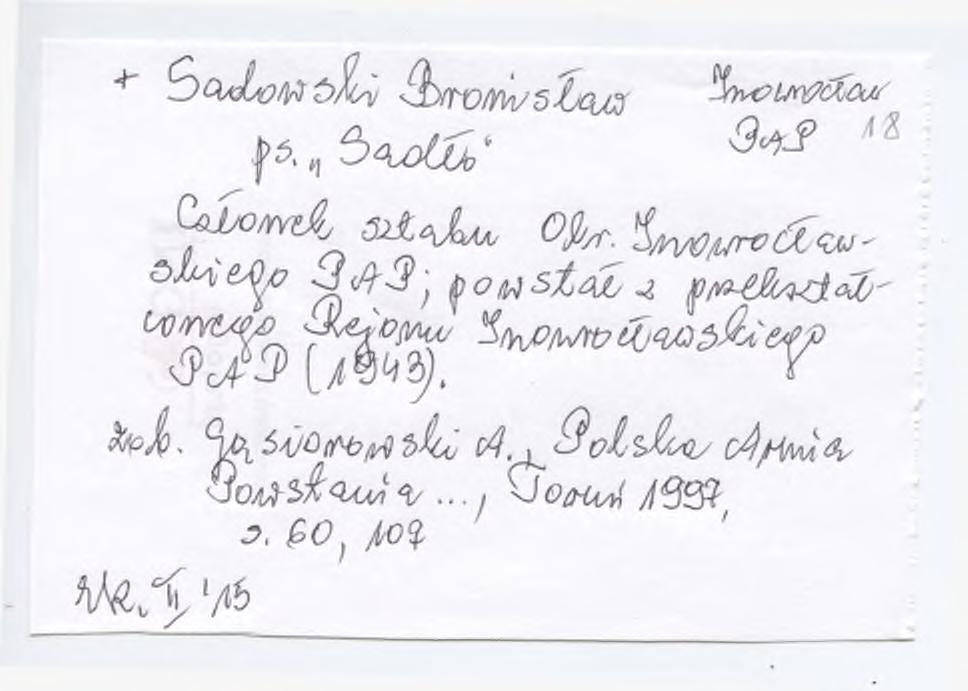 + Sadowski Bronisław Inowrocław
ps. „Sadło" PAP 18
Członek sztabu Okr. Inowrocław-
skiego PAP; powstał z przekształ-
conego Rejonu Inowrocławskiego
PAP (1943).
zob. Gąsiorowski A., Polska Armia
Powstania ..., Toruń 1997,
s. 60, 107
II '15